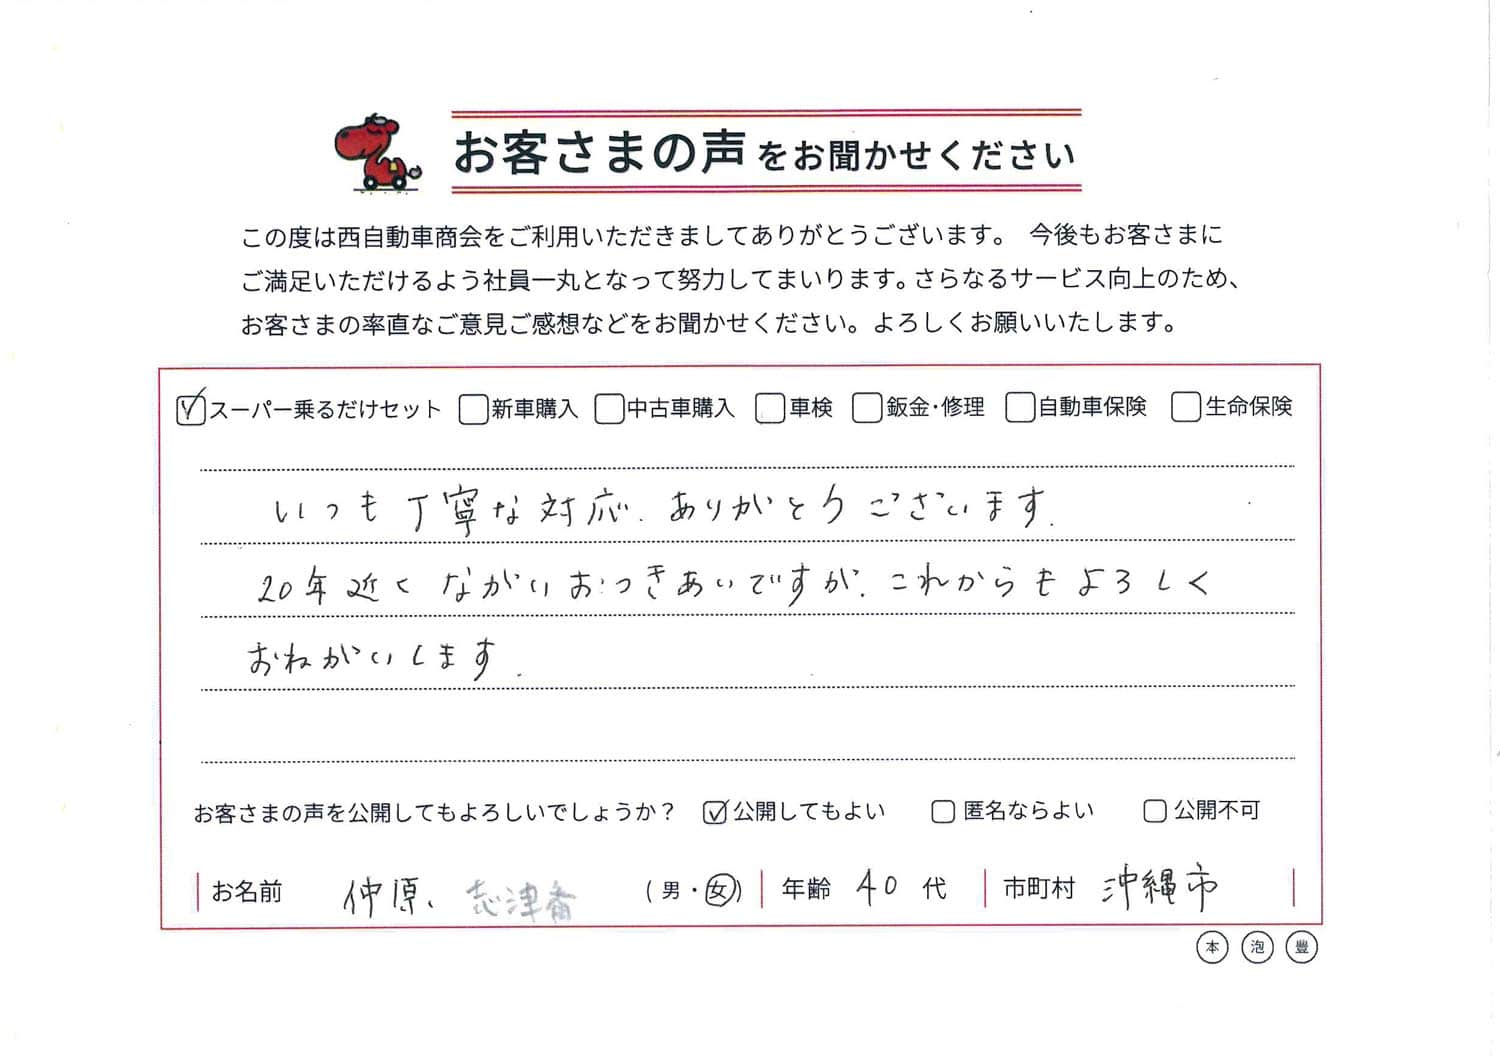 お客さまの声をお聞かせください
この度は西自動車商会をご利用いただきましてありがとうございます。 今後もお客さまに
ご満足いただけるよう社員一丸となって努力してまいります。さらなるサービス向上のため、
お客さまの率直なご意見ご感想などをお聞かせください。よろしくお願いいたします。
☑スーパー乗るだけセット □新車購入 □中古車購入 □車検 □鈑金・修理 □自動車保険 □生命保険
いつも丁寧な対応、ありがとうございます.
20年近くながいおつきあいですが、これからもよろしく
おねがいします.
お客さまの声を公開してもよろしいでしょうか? ☑公開してもよい □匿名ならよい □公開不可
お名前 仲原、志津 (男・女) 年齢 40代 市町村 沖縄市
本 泡 豊